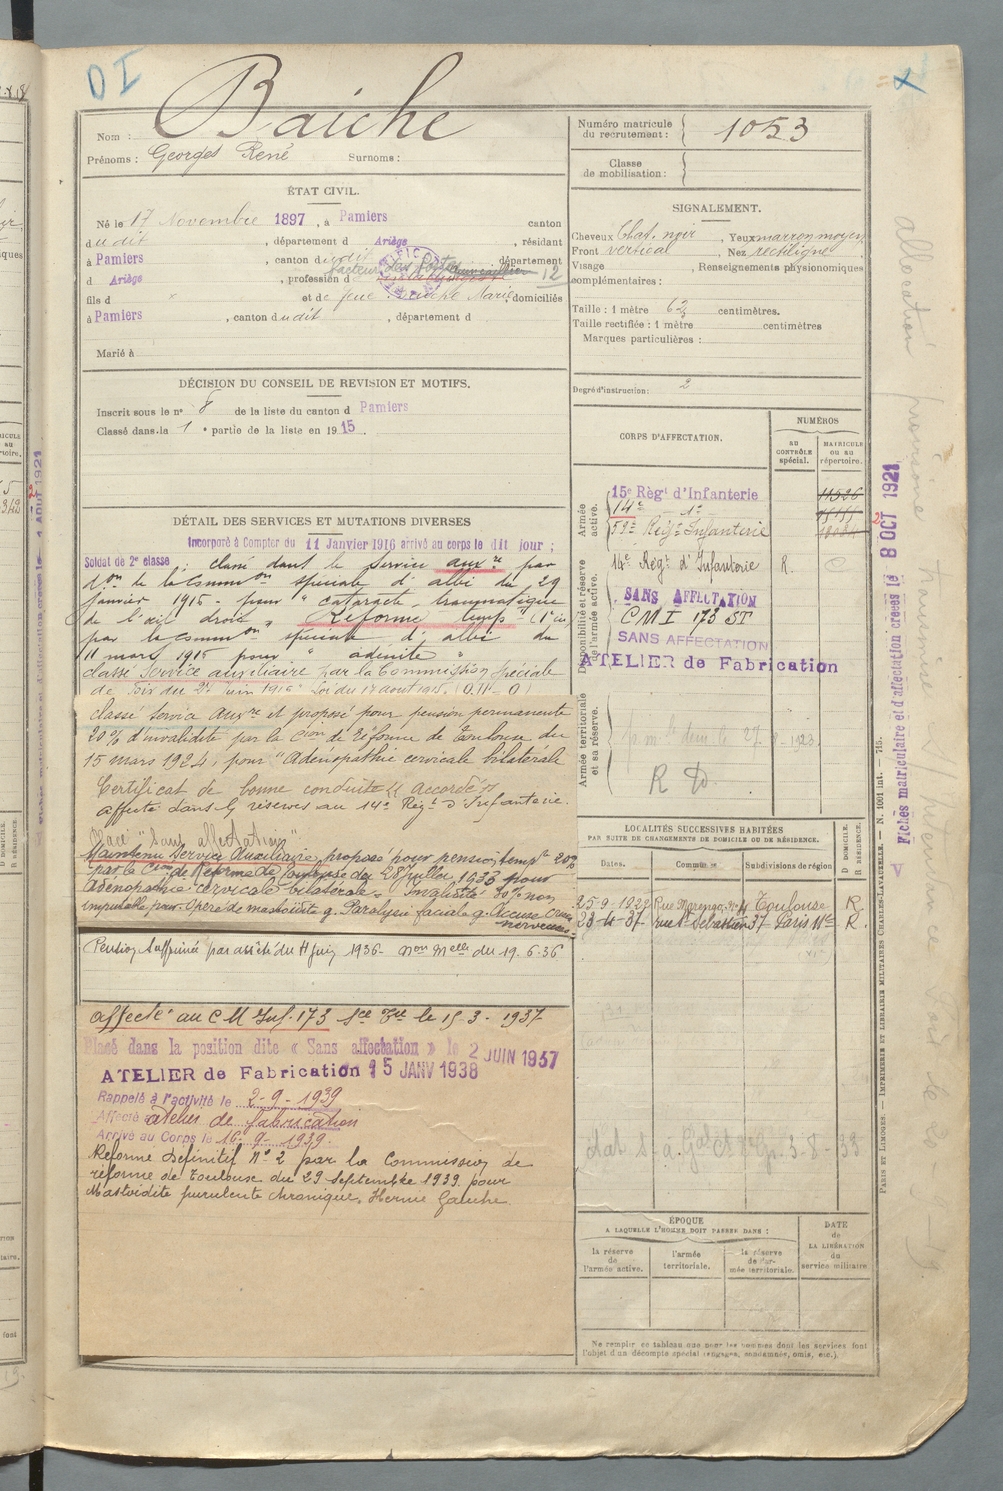 DI
Nom : Baiche
Prénoms : Georges René Surnoms :
Numéro matricule
du recrutement : 1053
Classe
de mobilisation :
ÉTAT CIVIL.
Né le 17 Novembre 1897, à Pamiers canton
dudit, département d Ariège, résidant
à Pamiers, canton dudit, département
d Ariège, profession d facteur des Postes 12
fils d " et de feue Baiche Marie, domiciliés
à Pamiers, canton dudit, département d
Marié à
SIGNALEMENT.
Cheveux Chat. noir, Yeux marron moyen
Front vertical, Nez rectiligne
Visage , Renseignements physionomiques
complémentaires :
Taille : 1 mètre 62 centimètres.
Taille rectifiée : 1 mètre centimètres
Marques particulières :
Degré d'instruction : 2
DÉCISION DU CONSEIL DE REVISION ET MOTIFS.
Inscrit sous le n° 8 de la liste du canton d Pamiers
Classé dans la 1e partie de la liste en 1915.
DÉTAIL DES SERVICES ET MUTATIONS DIVERSES
Incorporé à Compter du 11 Janvier 1916 arrivé au corps le dit jour ;
Soldat de 2e classe : classé dans le Service auxre par
don de la Common spéciale d'albi du 29
janvier 1915 - pour " cataracte traumatique
de l'œil droit " Réforme temp.
par la Common spéciale d'albi du
11 mars 1915 pour " adénite "
classé Service auxiliaire par la Commission Spéciale
de Foix du 27 Juin 1916 Loi du 17 aout 1915. (O.II-0)
classé Service Auxre et proposé pour pension permanente
20% d'invalidité par la Cion de Réforme de Toulouse du
15 mars 1924, pour "Adénopathie cervicale bilatérale
Certificat de bonne conduite "accordé"
affecté dans les réserves au 14e Régt d'Infanterie.
Placé "Sans affectation".
Maintenu Service Auxiliaire, proposé pour pension tempre 20%
par la Cion de Réforme de Toulouse du 28 juillet 1933 pour
Adénopathie cervicale bilatérale - Invalidité 30% non
imputable pour Opéré de mastoïdite g. Paralysie faciale g.
nerveuse.
Pension supprimée par arrêté du 11 Juin 1936. Non Melle du 19.6.36
affecté au C M Inf. 173 Sce Tre le 15.3.1937
Placé dans la position dite « Sans affectation » le 2 JUIN 1937
ATELIER de Fabrication 15 JANV 1938
Rappelé à l'activité le 2-9-1939
Affecté atelier de fabrication
Arrivé au Corps le 16-9-1939.
Réformé définitif N° 2 par la Commission de
réforme de Toulouse du 29 Septembre 1939 pour
Mastoïdite purulente chronique. Hernie Gauche.
CORPS D'AFFECTATION.
NUMÉROS
AU
CONTRÔLE
spécial.
MATRICULE
OU AU
répertoire.
Armée
active.
15e Régt d'Infanterie 11526
14e — 1e —
59e Régt Infanterie
Disponibilité et réserve
de l'armée active.
14e Régt d'Infanterie R.
SANS AFFECTATION
C M I 173 ST
SANS AFFECTATION
ATELIER de Fabrication
Armée territoriale
et sa réserve.
R D.
LOCALITÉS SUCCESSIVES HABITÉES
PAR SUITE DE CHANGEMENTS DE DOMICILE OU DE RÉSIDENCE.
Dates. Communes Subdivisions de région D DOMICILE. R RÉSIDENCE.
25-9-1928 Rue Marengo, No 4 Toulouse R
23-4-37 rue St Sébastien 37 Paris 11e R.
ÉPOQUE
A LAQUELLE L'HOMME DOIT PASSER DANS :
la réserve
de
l'armée active.
l'armée
territoriale.
la réserve
de l'ar-
mée territoriale.
DATE
de
LA LIBÉRATION
du
service militaire
Ne remplir ce tableau que pour les hommes dont les services font
l'objet d'un décompte spécial (engagés, condamnés, omis, etc.).
Fiches matriculaire et d'affectation créées le 8 OCT 1921
PARIS ET LIMOGES. — IMPRIMERIE ET LIBRAIRIE MILITAIRES CHARLES-LAVAUZELLE. — N. 1001 int. — 715.